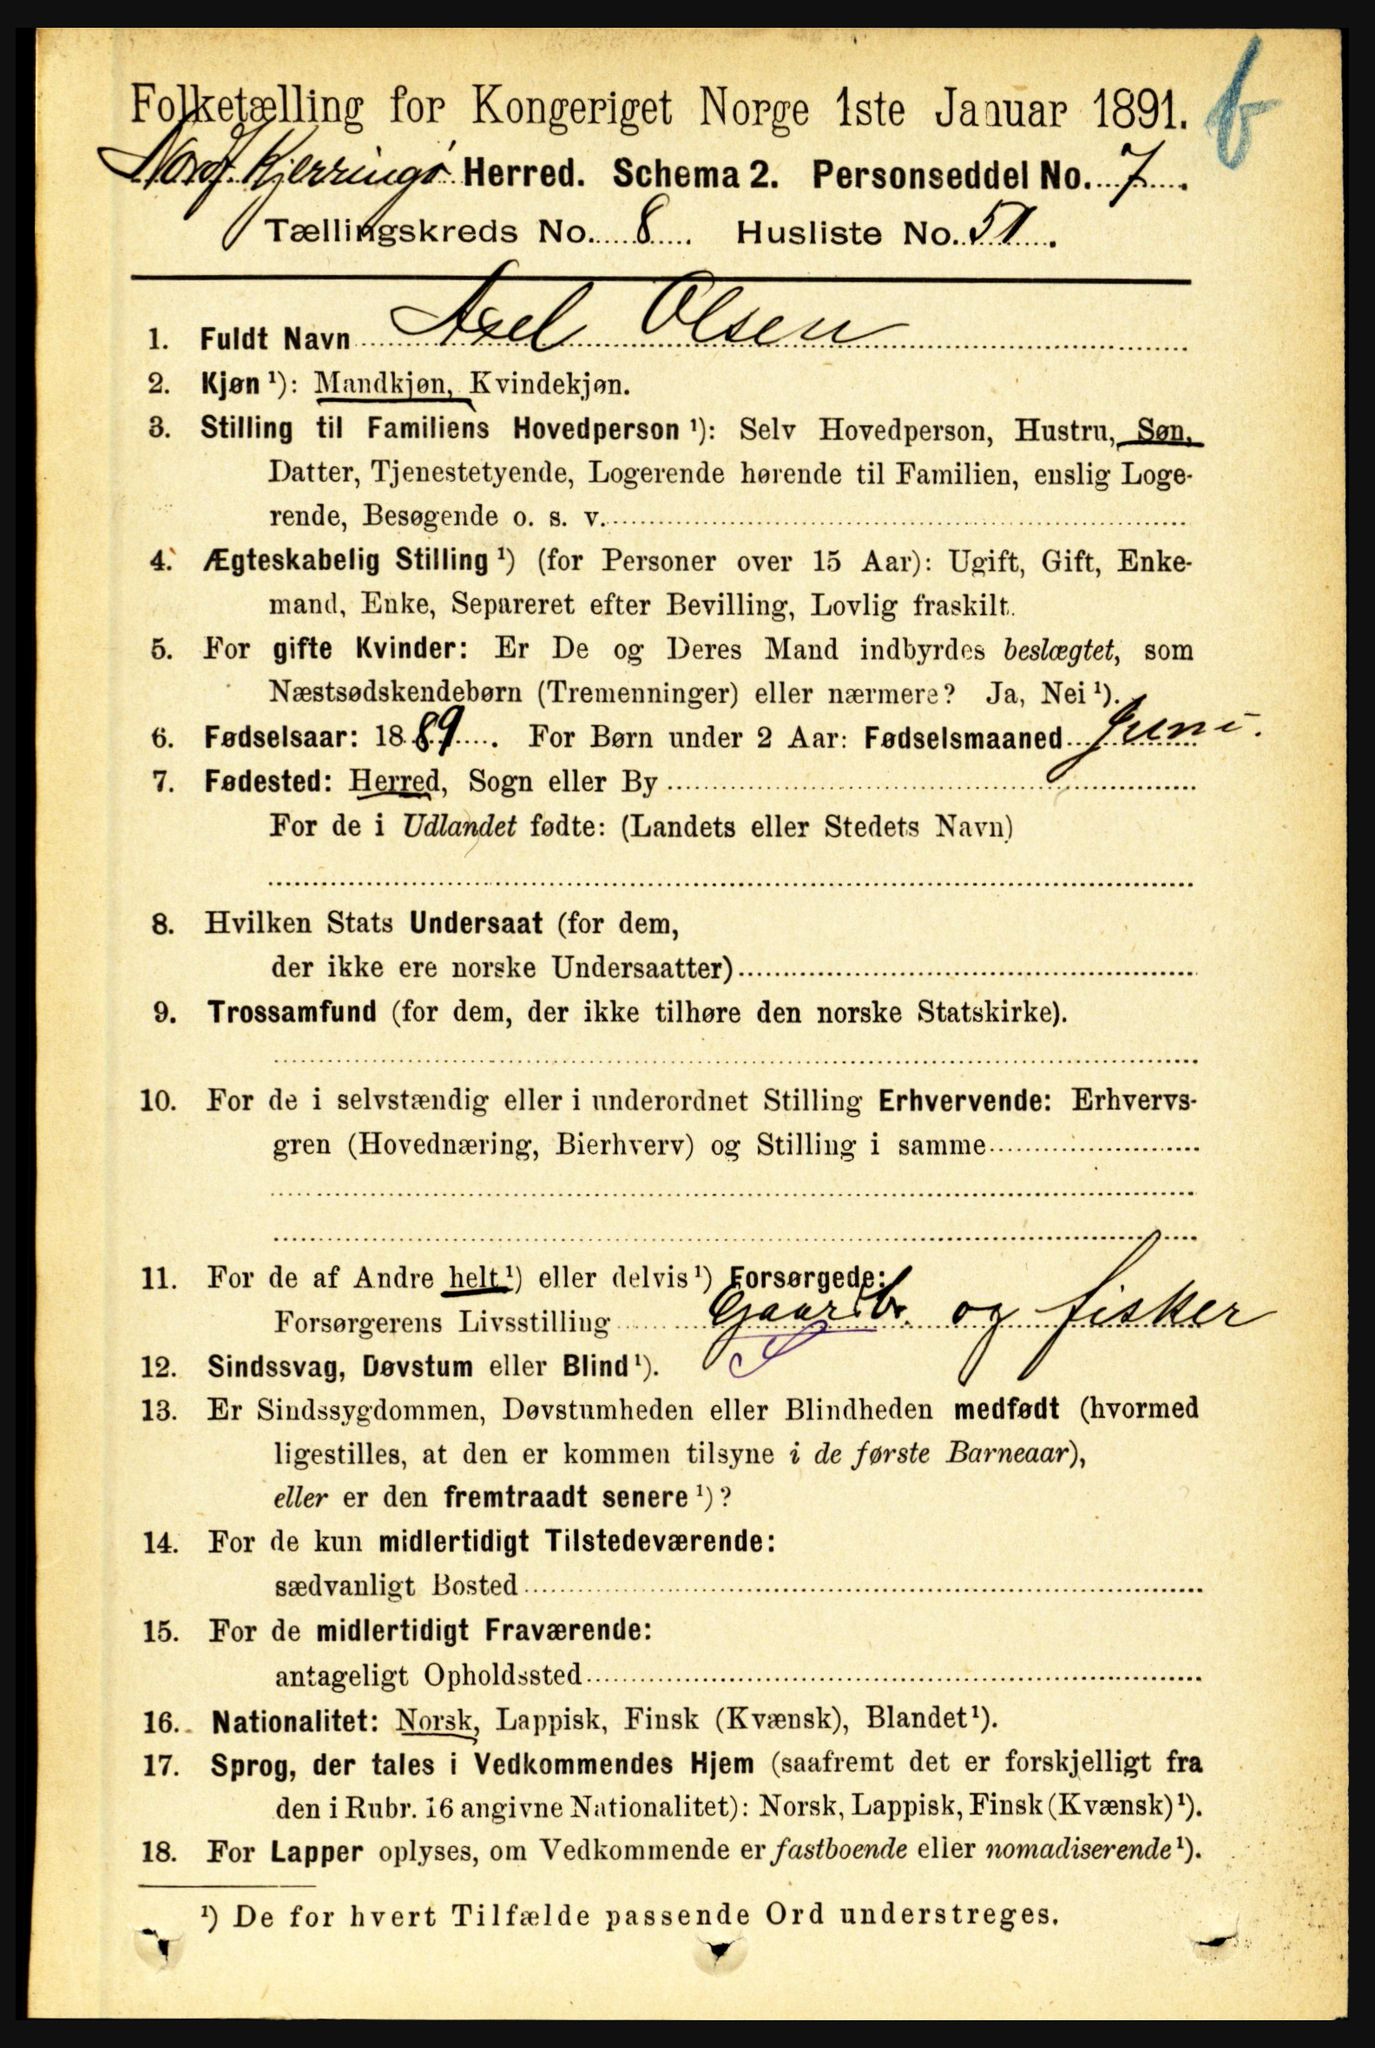 b
Folketælling for Kongeriget Norge 1ste Januar 1891.
Nordf. Kjerringø Herred. Schema 2. Personseddel No. 7.
Tællingskreds No. 8. Husliste No. 51.
1. Fuldt Navn Axel Olsen
2. Kjøn ¹): Mandkjøn, Kvindekjøn.
3. Stilling til Familiens Hovedperson ¹): Selv Hovedperson, Hustru, Søn,
Datter, Tjenestetyende, Logerende hørende til Familien, enslig Loge-
rende, Besøgende o. s. v.
4. Ægteskabelig Stilling ¹) (for Personer over 15 Aar): Ugift, Gift, Enke-
mand, Enke, Separeret efter Bevilling, Lovlig fraskilt.
5. For gifte Kvinder: Er De og Deres Mand indbyrdes beslægtet, som
Næstsødskendebørn (Tremenninger) eller nærmere? Ja, Nei ¹).
6. Fødselsaar: 1889. For Børn under 2 Aar: Fødselsmaaned Juni.
7. Fødested: Herred, Sogn eller By
For de i Udlandet fødte: (Landets eller Stedets Navn)
8. Hvilken Stats Undersaat (for dem,
der ikke ere norske Undersaatter)
9. Trossamfund (for dem, der ikke tilhøre den norske Statskirke).
10. For de i selvstændig eller i underordnet Stilling Erhvervende: Erhvervs-
gren (Hovednæring, Bierhverv) og Stilling i samme
11. For de af Andre helt ¹) eller delvis ¹) Forsørgede:
Forsørgerens Livsstilling Gaardb. og fisker
12. Sindssvag, Døvstum eller Blind ¹). S
13. Er Sindssygdommen, Døvstumheden eller Blindheden medfødt (hvormed
ligestilles, at den er kommen tilsyne i de første Barneaar),
eller er den fremtraadt senere ¹)?
14. For de kun midlertidigt Tilstedeværende:
sædvanligt Bosted
15. For de midlertidigt Fraværende:
antageligt Opholdssted
16. Nationalitet: Norsk, Lappisk, Finsk (Kvænsk), Blandet ¹).
17. Sprog, der tales i Vedkommendes Hjem (saafremt det er forskjelligt fra
den i Rubr. 16 angivne Nationalitet): Norsk, Lappisk, Finsk (Kvænsk) ¹).
18. For Lapper oplyses, om Vedkommende er fastboende eller nomadiserende ¹).
¹) De for hvert Tilfælde passende Ord understreges.